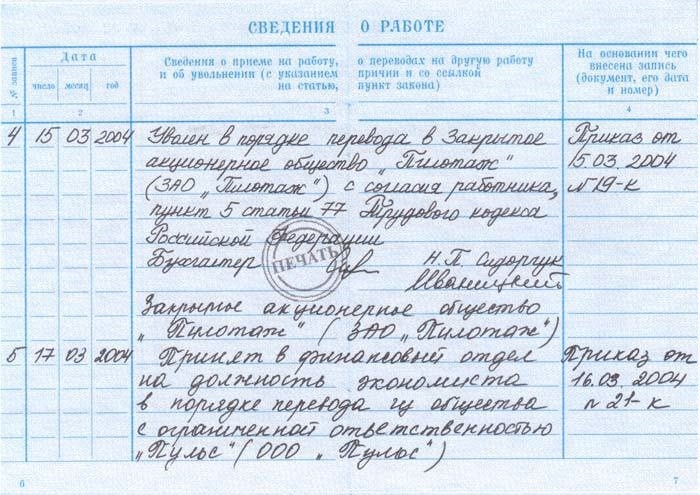 СВЕДЕНИЯ О РАБОТЕ
№ записи
Дата
число месяц год
Сведения о приеме на работу, о переводах на другую работу
и об увольнении (с указанием причин и со ссылкой
на статью, пункт закона)
На основании чего
внесена запись
(документ, его дата
и номер)
1 2 3 4
4 15 03 2004 Уволен в порядке перевода в Закрытое Приказ от
акционерное общество „Пилотаж" 15.03.2004
(ЗАО „Пилотаж") с согласия работника, №19-к
пункт 5 статьи 77 Трудового кодекса
Российской Федерации
Бухгалтер Н.П. Сидорчук
ПЕЧАТЬ
Иваницкий
Закрытое акционерное общество
„Пилотаж" (ЗАО „Пилотаж")
5 17 03 2004 Принят в финансовый отдел Приказ от
на должность экономиста 16.03.2004
в порядке перевода из общества №21-к
с ограниченной ответственностью
„Пульс" (ООО „Пульс")
6 7